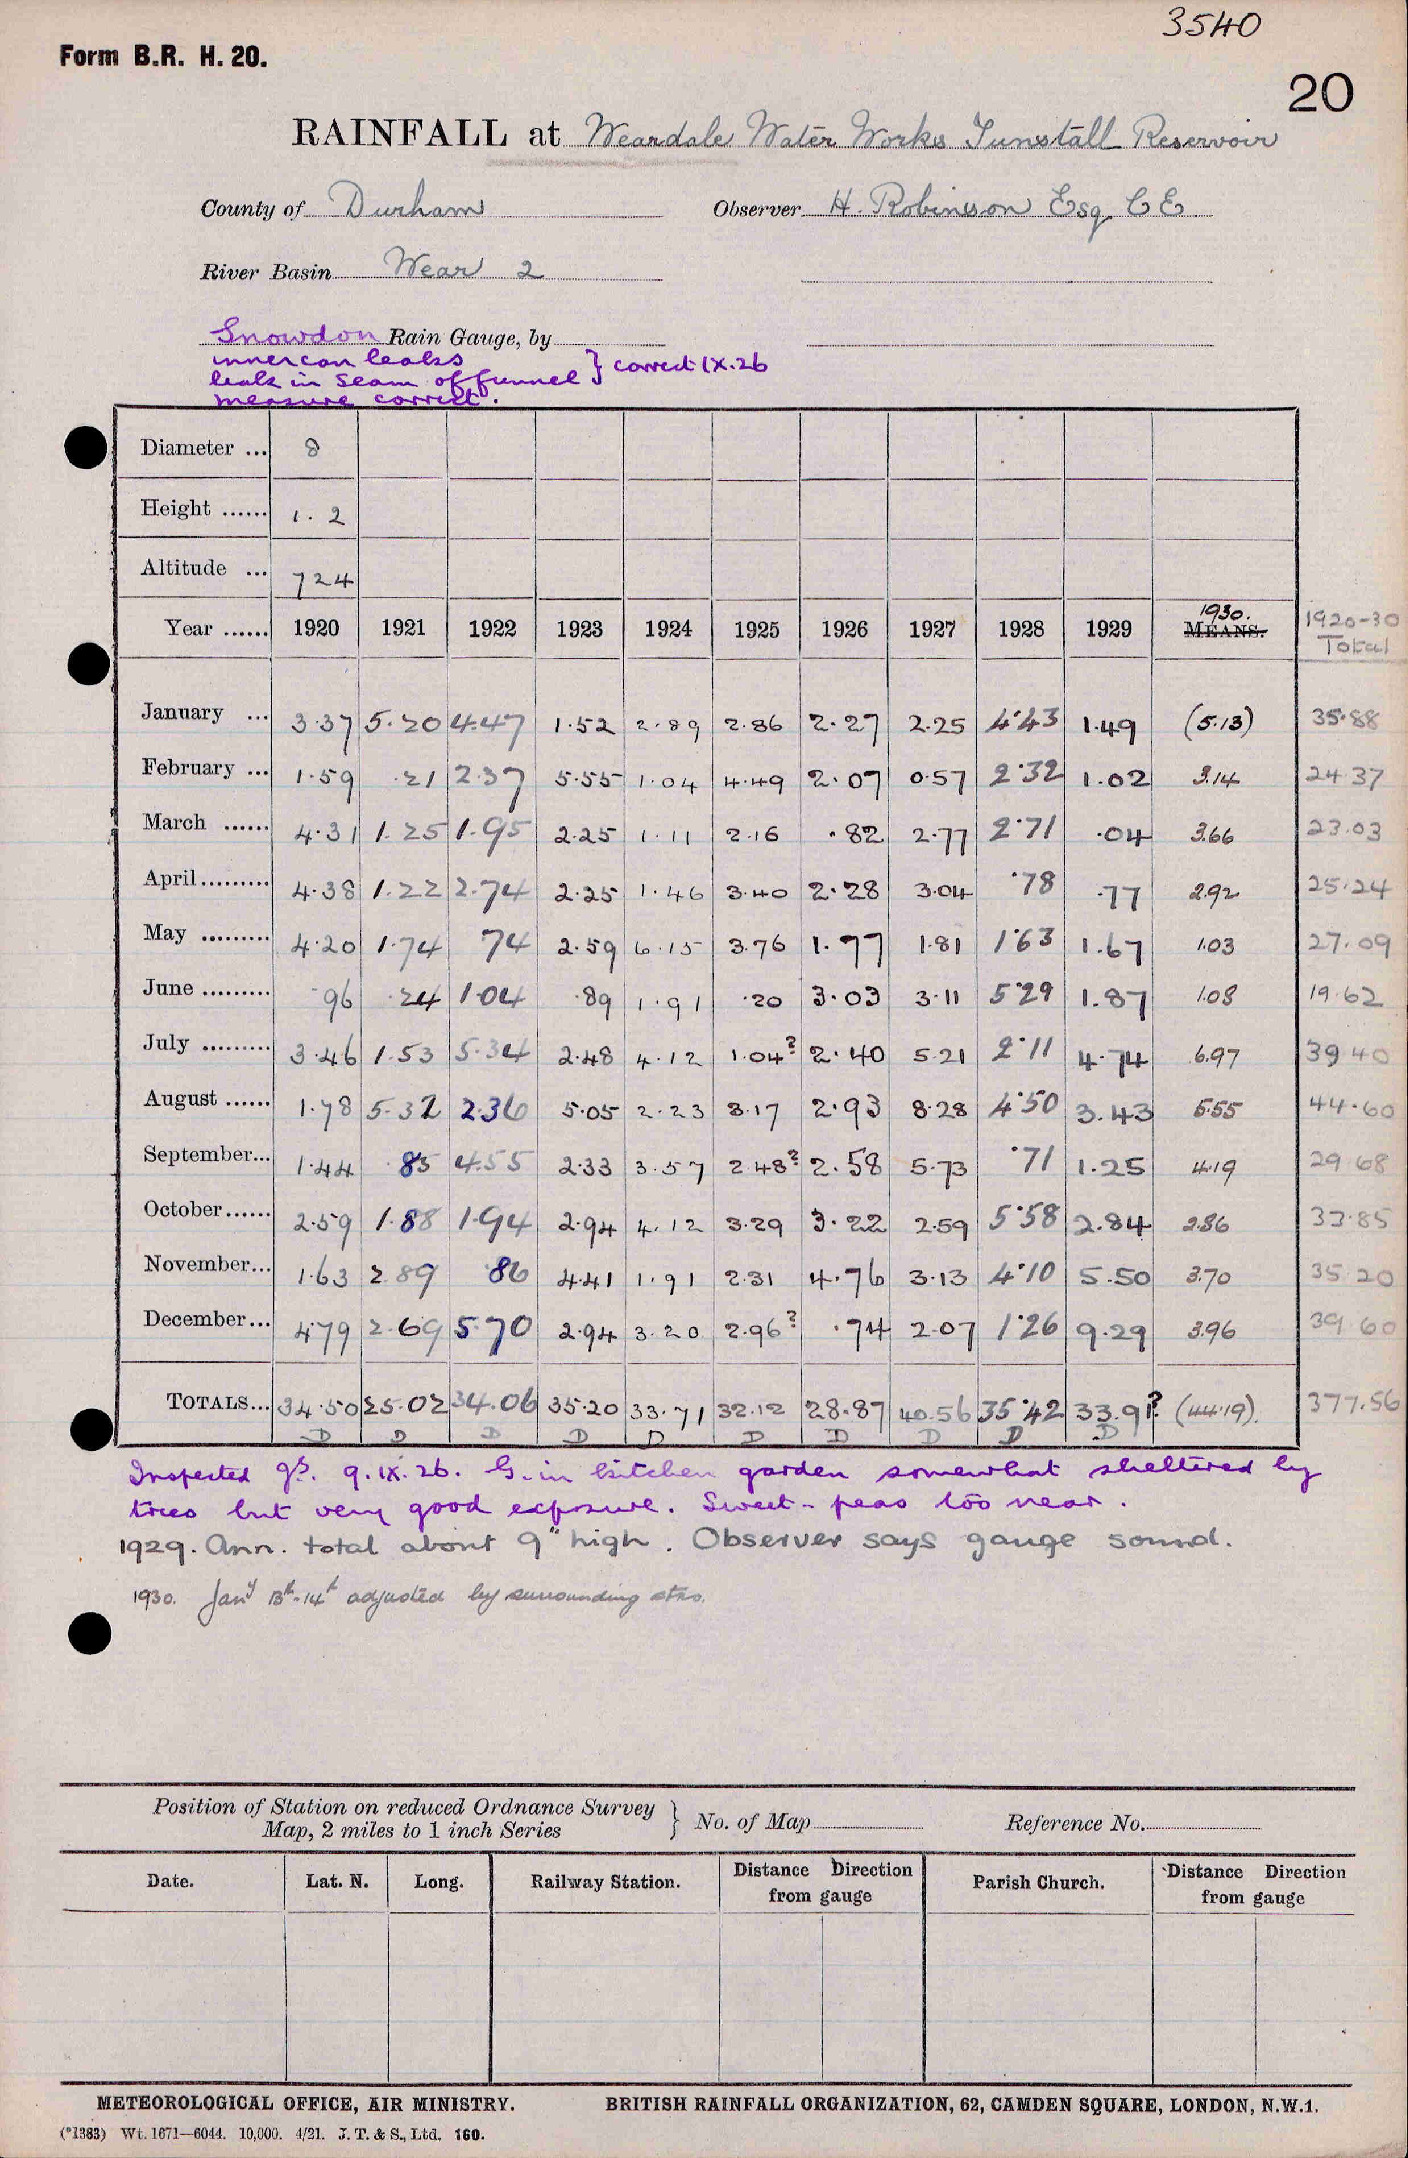 3540
Form B.R. H. 20.
20
RAINFALL at Weardale Water Works Tunstall Reservoir
County of Durham Observer H. Robinson Esq C E
River Basin Wear 2
Snowdon Rain Gauge, by
inner can leaks
leak in seam of funnel } correct IX.26
measure correct.
Diameter ... 8
Height ...... 1.2
Altitude ... 724
Year ...... 1920 1921 1922 1923 1924 1925 1926 1927 1928 1929 1930. MEANS. 1920-30 Total
January ... 3.37 5.20 4.47 1.52 2.89 2.86 2.27 2.25 4.43 1.49 (5.13) 35.88
February ... 1.59 .21 2.37 5.55 1.04 4.49 2.07 0.57 2.32 1.02 3.14 24.37
March ...... 4.31 1.25 1.95 2.25 1.11 2.16 .82 2.77 2.71 .04 3.66 23.03
April ......... 4.38 1.22 2.74 2.25 1.46 3.40 2.28 3.04 .78 .77 2.92 25.24
May ......... 4.20 1.74 74 2.59 6.15 3.76 1.77 1.81 1.63 1.67 1.03 27.09
June ......... .96 .24 1.04 .89 1.91 .20 3.03 3.11 5.29 1.87 1.08 19.62
July ......... 3.46 1.53 5.34 2.48 4.12 1.04? 2.40 5.21 2.11 4.74 6.97 39.40
August ...... 1.78 5.32 2.36 5.05 2.23 3.17 2.93 8.28 4.50 3.43 5.55 44.60
September... 1.44 .85 4.55 2.33 3.57 2.48? 2.58 5.73 .71 1.25 4.19 29.68
October ...... 2.59 1.88 1.94 2.94 4.12 3.29 3.22 2.59 5.58 2.84 2.86 33.85
November... 1.63 2.89 .86 4.41 1.91 2.31 4.76 3.13 4.10 5.50 3.70 35.20
December... 4.79 2.69 5.70 2.94 3.20 2.96? .74 2.07 1.26 9.29 3.96 39.60
TOTALS... 34.50 25.02 34.06 35.20 33.71 32.12 28.87 40.56 35.42 33.91? (44.19). 377.56
D D D D D D D D D D
Inspected gs. 9.IX.26. G. in kitchen garden somewhat sheltered by
trees but very good exposure. Sweet-peas too near.
1929. Ann. total about 9" high. Observer says gauge sound.
1930. Jany 13th-14th adjusted by surrounding stns.
Position of Station on reduced Ordnance Survey
Map, 2 miles to 1 inch Series } No. of Map Reference No.
Date. Lat. N. Long. Railway Station. Distance Direction from gauge Parish Church. Distance Direction from gauge
METEOROLOGICAL OFFICE, AIR MINISTRY. BRITISH RAINFALL ORGANIZATION, 62, CAMDEN SQUARE, LONDON, N.W.1.
(*1383) Wt. 1671—6044. 10,000. 4/21. J. T. & S., Ltd. 160.